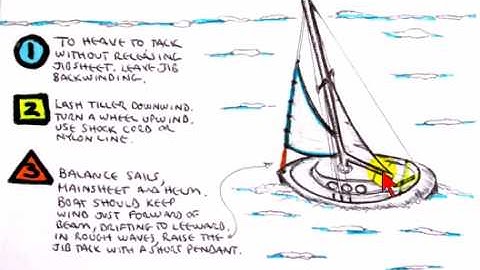 1
TO HEAVE TO TACK
WITHOUT RELEASING
JIBSHEET. LEAVE JIB
BACKWINDING.
2
LASH TILLER DOWNWIND.
TURN A WHEEL UPWIND.
USE SHOCK CORD OR
NYLON LINE.
3
BALANCE SAILS,
MAINSHEET AND HELM.
BOAT SHOULD KEEP
WIND JUST FORWARD OF
BEAM, DRIFTING TO LEEWARD.
IN ROUGH WAVES, RAISE THE
JIB TACK WITH A SHORT PENDANT.